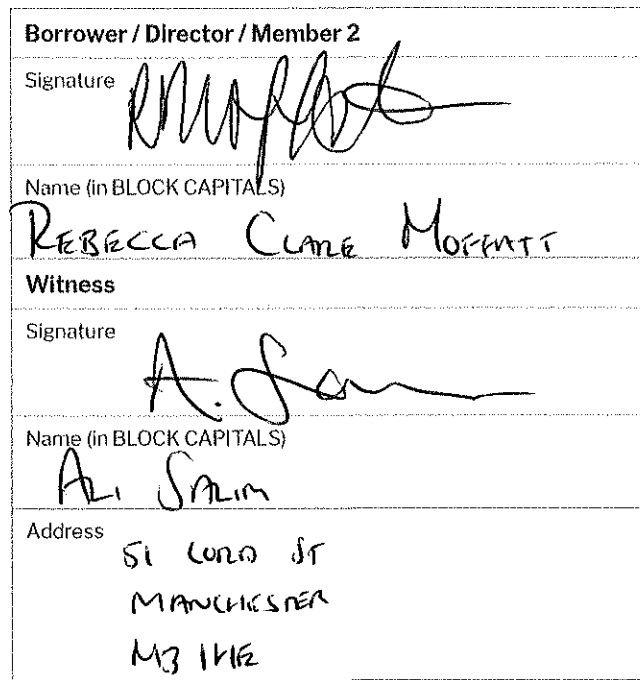 Borrower / Director / Member 2
Signature
Name (in BLOCK CAPITALS)
REBECCA CLARE MOFFATT
Witness
Signature
A. Sa
Name (in BLOCK CAPITALS)
ALI SALIM
Address
51 LORD ST
MANCHESTER
M3 1HE